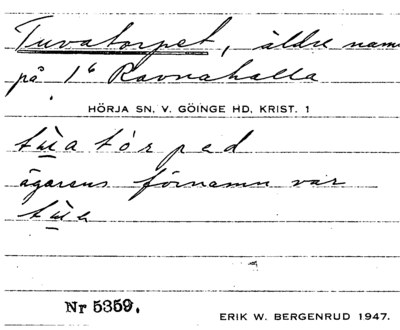 Tuvatorpet, äldre namn
på 1⁶ Ravnahalla
HÖRJA SN, V. GÖINGE HD, KRIST. 1
tu̲a tórped
ägarens förnamn var
tu̲e
Nr 5359.
ERIK W. BERGENRUD 1947.